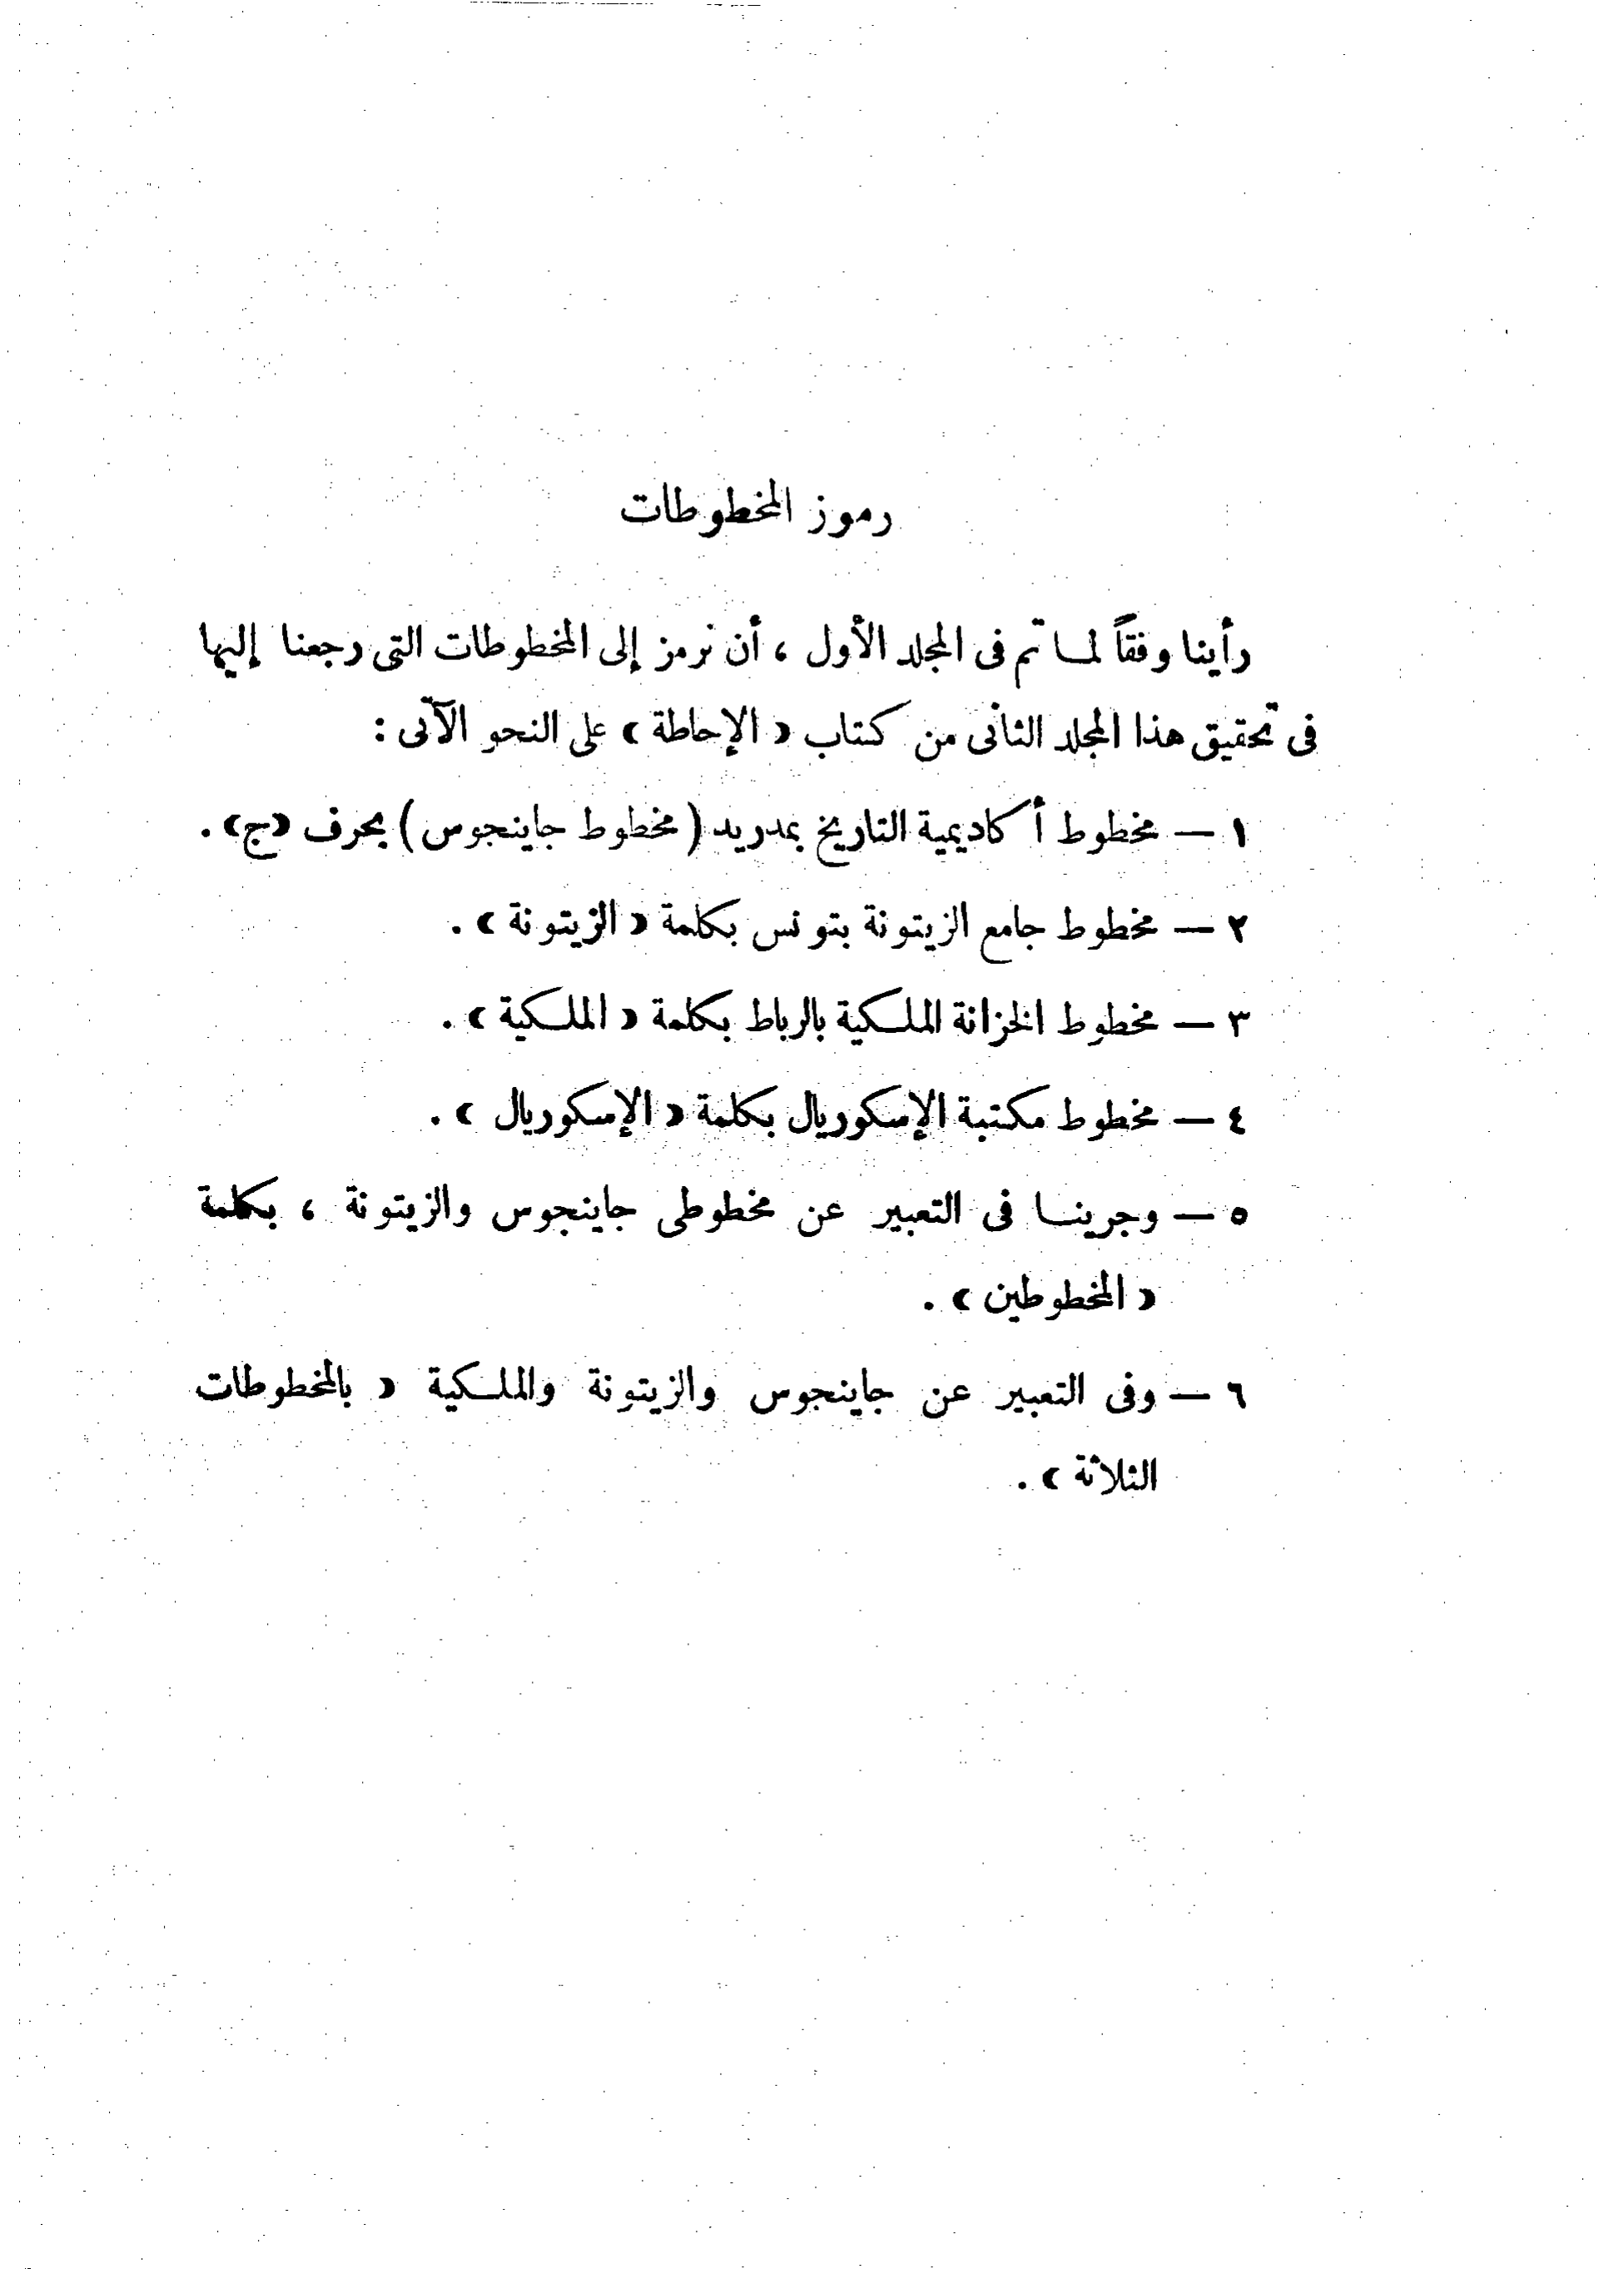 رموز المخطوطات
رأينا وفقاً لما تم فى المجلد الأول ، أن نرمز إلى المخطوطات التى رجعنا إليها
فى تحقيق هذا المجلد الثانى من كتاب « الإحاطة » على النحو الآتى :
١ — مخطوط أكاديمية التاريخ بمدريد ( مخطوط جاينجوس ) بحرف «ج» .
٢ — مخطوط جامع الزيتونة بتونس بكلمة « الزيتونة » .
٣ — مخطوط الخزانة الملكية بالرباط بكلمة « الملكية » .
٤ — مخطوط مكتبة الإسكوريال بكلمة « الإسكوريال » .
٥ — وجرينا فى التعبير عن مخطوطى جاينجوس والزيتونة ، بكلمة
« المخطوطين » .
٦ — وفى التعبير عن جاينجوس والزيتونة والملكية « بالمخطوطات
الثلاثة » .